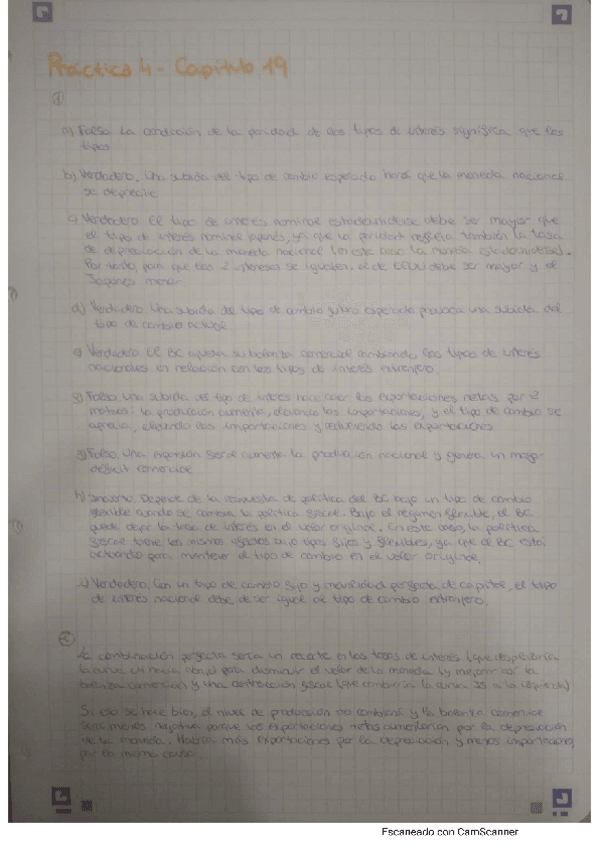 Práctica 4 - Capítulo 19
1)
a) Falso. La condición de la paridad de los tipos de interés significa que los
tipos
b) Verdadero. Una subida del tipo de cambio esperado hará que la moneda nacional
se deprecie
c) Verdadero. El tipo de interés nominal estadounidense debe ser mayor que
el tipo de interés nominal japonés, ya que la paridad refleja también la tasa
de depreciación de la moneda nacional (en este caso la moneda estadounidense).
Por tanto, para que los 2 intereses se igualen, el de EEUU debe ser mayor y el
Japonés menor
d) Verdadero. Una subida del tipo de cambio futuro esperado provoca una subida del
tipo de cambio actual
e) Verdadero. El BC ajusta su balanza comercial cambiando los tipos de interés
nacionales en relación con los tipos de interés extranjero.
f) Falso. Una subida del tipo de interés hace caer las exportaciones netas por 2
motivos: la producción aumenta, elevando las importaciones, y el tipo de cambio se
aprecia, elevando las importaciones y reduciendo las exportaciones
g) Falso. Una expansión fiscal aumenta la producción nacional y genera un mayor
déficit comercial
h) Incierto. Depende de la respuesta de política del BC bajo un tipo de cambio
flexible cuando se cambia la política fiscal. Bajo el régimen flexible, el BC
puede dejar la tasa de interés en el valor original. En este caso, la política
fiscal tiene los mismos efectos bajo tipos fijos y flexibles, ya que el BC está
actuando para mantener el tipo de cambio en el valor original.
i) Verdadero. Con un tipo de cambio fijo y movilidad perfecta de capital, el tipo
de interés nacional debe de ser igual al tipo de cambio extranjero.
La combinación perfecta sería un recorte en las tasas de interés (que desplazaría
la curva hacia abajo) para disminuir el valor de la moneda (y mejorar así la
balanza comercial) y una contracción fiscal (que cambiaría la curva IS a la izquierda)
Si eso se hace bien, el nivel de producción no cambiará y la balanza comercial
será menos negativa porque las exportaciones netas aumentarían por la depreciación
de la moneda. Habría más exportaciones por la depreciación y menos importaciones
por la misma causa.
Escaneado con CamScanner